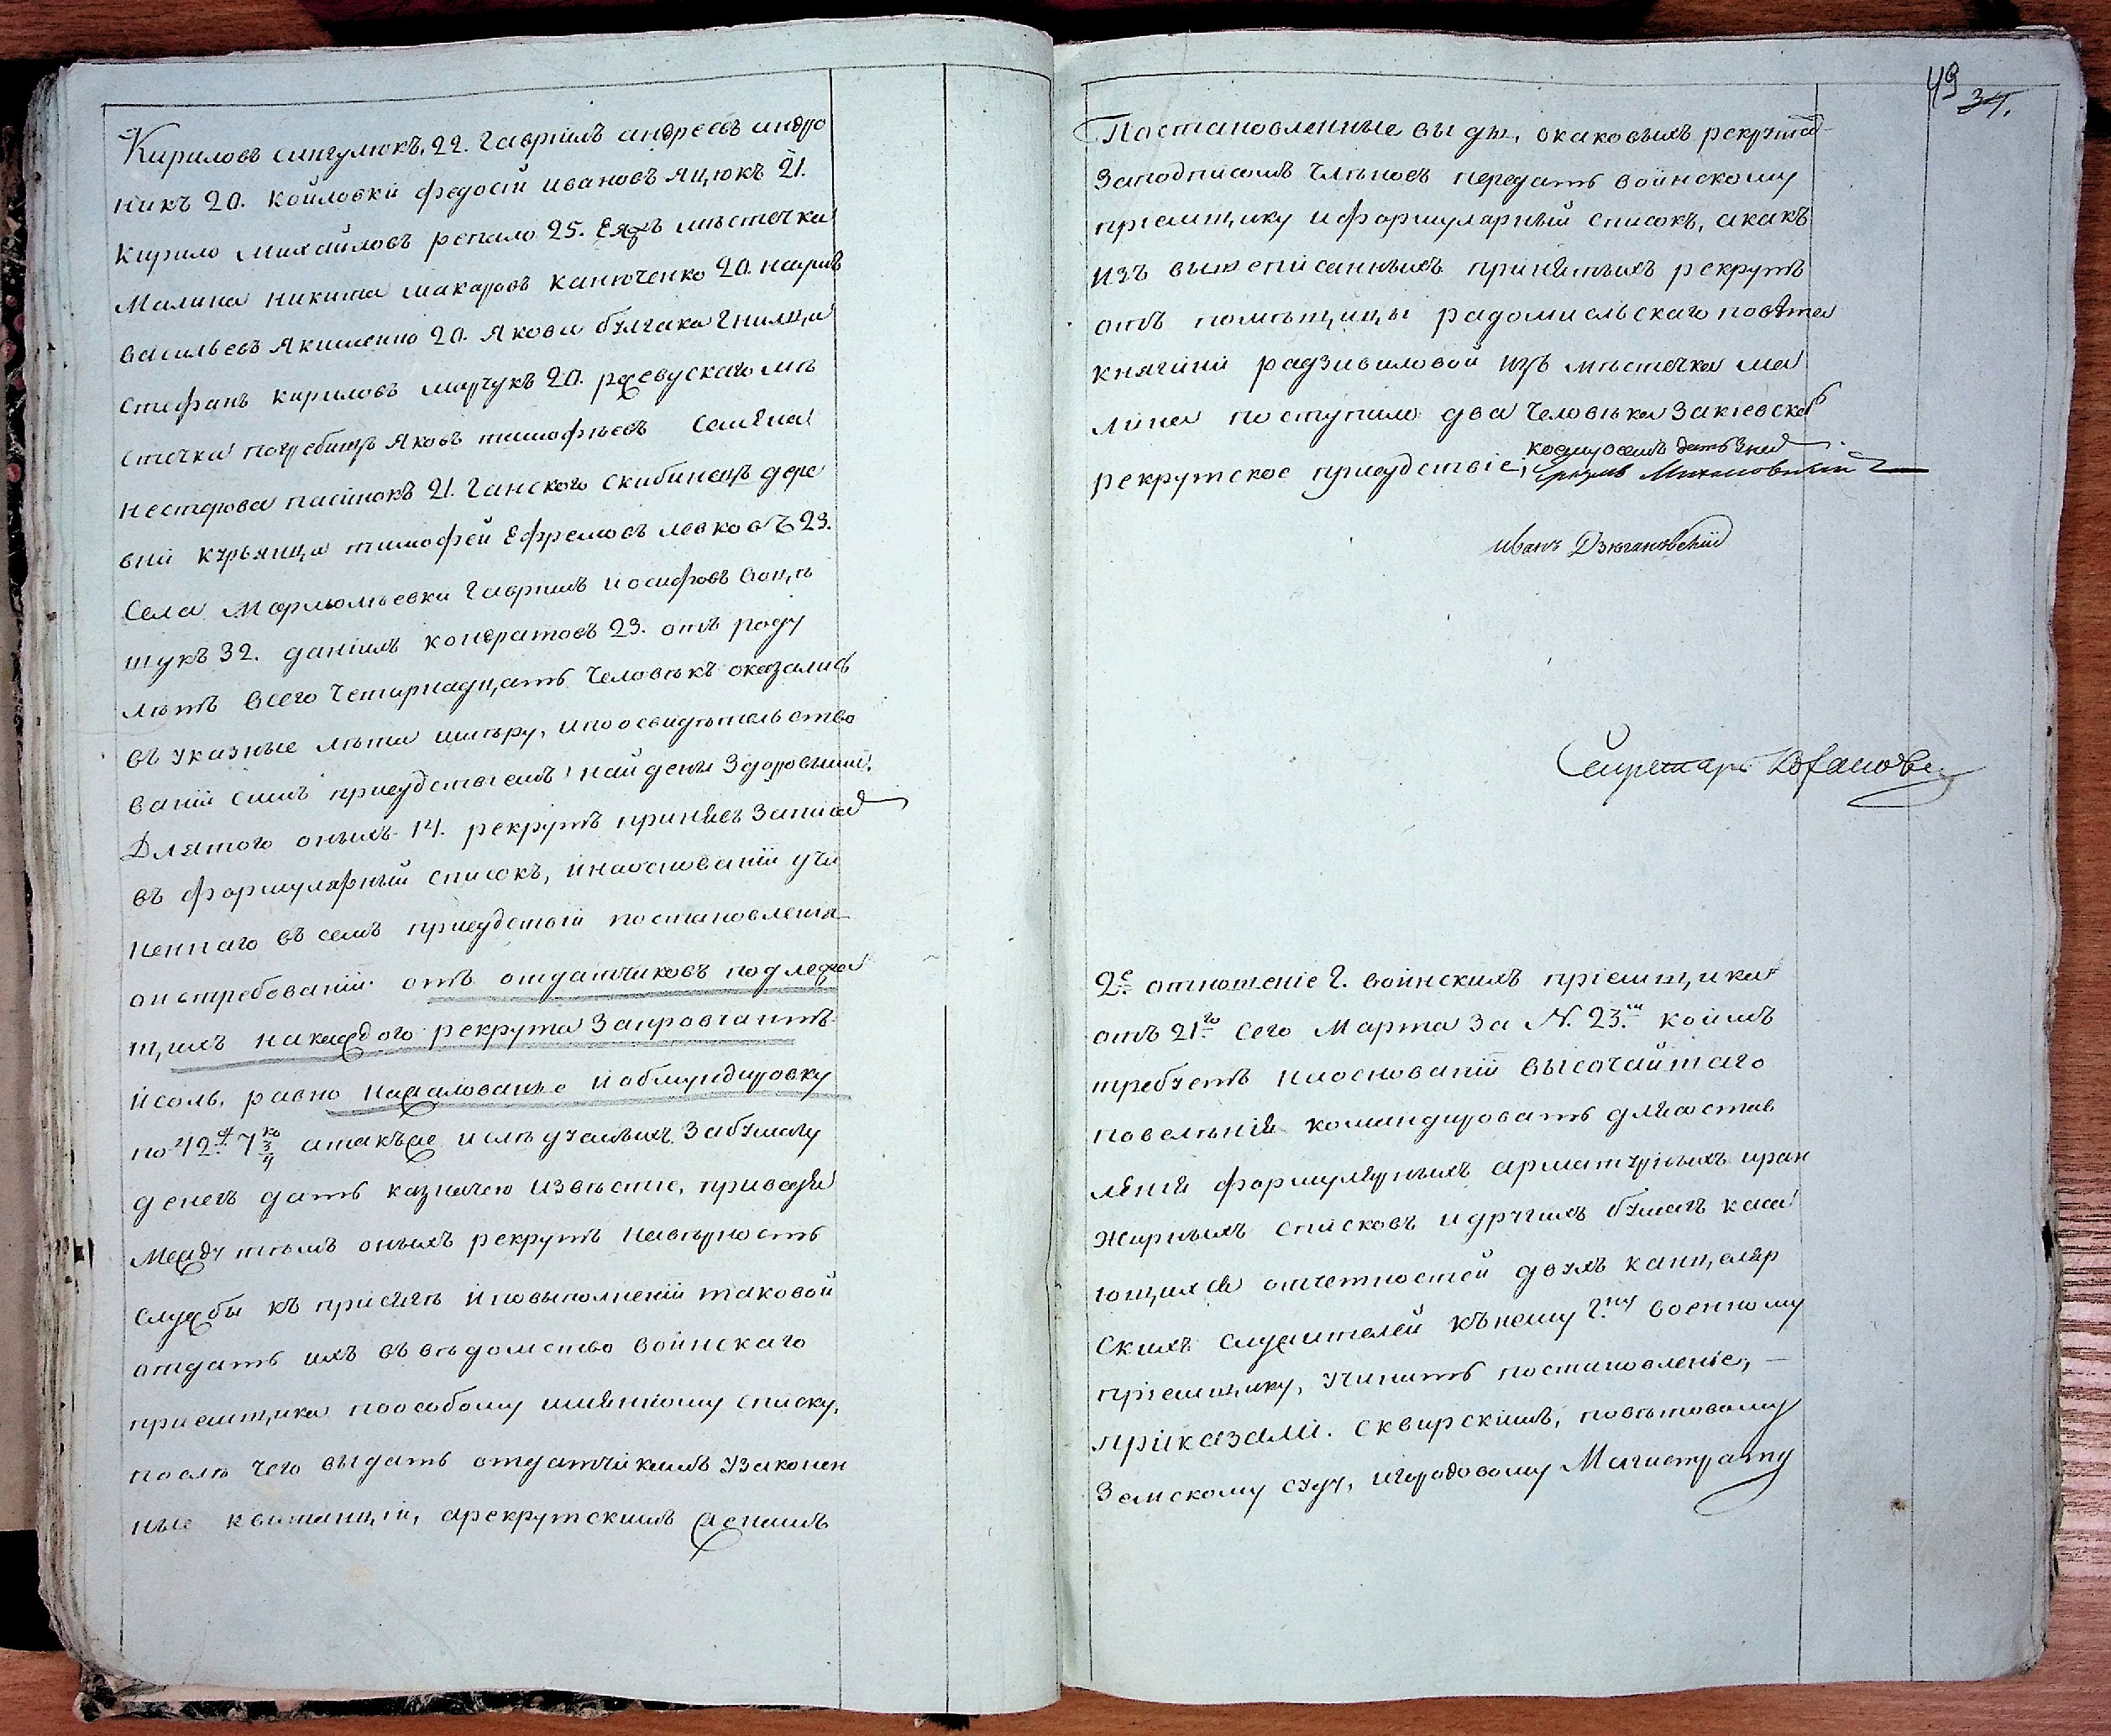 Кириловъ сингулюкъ, 22. Гавріилъ андреевъ андро
никъ 20. Койловки федосій ивановъ Яцюкъ 21.
Кирило Михайловъ репало 25. Еяжъ мѣстечка
Малина никита макаровъ канюченко 20. наумъ
васильевъ Якименко 20. Якова булгака гнилца
Стефанъ кириловъ марчукъ 20. ржевускаго мѣ
стечка погребищъ Яковъ тимофѣевъ Семена
нестерова пасинокъ 21. Ганского Скибинецъ дере
вни курьянца тимофей Ефремовъ левковъ 23.
Села Мормолѣевки Гавріилъ иосифовъ воцѣ
щукъ 32. даніилъ кондратовъ 23. отъ роду
лѣтъ всего Четирнадцать человѣкъ оказались
въ указные лѣта имѣру, ипоосвидѣтельство
ваніи симъ присудствіемъ найдены здоровыми.
Длятого оныхъ 14. рекрутъ принявъ записа
въ формулярный списокъ, инаоснованіи учи
неннаго въ семъ присудствіи постановленія
опотребованіи отъ отдатчиковъ подлежа
щихъ накаждого рекрута запровіантъ
исоль, равно нажалованье иобмундировку
по 42 р. 7 3/4 ко атакъже исолѣдуемыхъ забумагу
денегъ дать казначею извѣстіе, приведя
между тѣмъ оныхъ рекрутъ навѣрность
службы къ присягѣ иповыполненіи таковой
отдать ихъ въ вѣдомство воинскаго
приемщика поособому имянному списку,
послѣ чего выдать отдатчикамъ узаконен
ные квитанціи, арекрутскимъ женамъ
49
34.
Постановленные виды, окаковыхъ рекрута
Заподписомъ членовъ передать воинскому
пріемщику иформулярный списокъ, акакъ
изъ вышеписанныхъ принятыхъ рекрутъ
отъ помѣщицы радомисльскаго повѣта
княгини радзивиловой изъ мѣстечка ма
лина поступило два человѣка закіевское
рекрутское присудствіе,
коему осемъ дать знать
Иванъ Дзюгановскій
Секретарь
2е. отношеніе Г. воинскихъ пріемщика
отъ 21го сего Марта за N. 23.мъ коимъ
требуетъ наоснованіи высочайшаго
повелѣнія командировать длясостав
ленія формулярныхъ арматурныхъ иран
жирныхъ списковъ идругихъ бумагъ каса
ющихся отчетностей двухъ канцеляр
скихъ служителей кънему г.ну военному
пріемщику, учинить постановленіе, —
приказали. Сквирскимъ, повѣтовому
Земскому суду, игородовому Магистрату